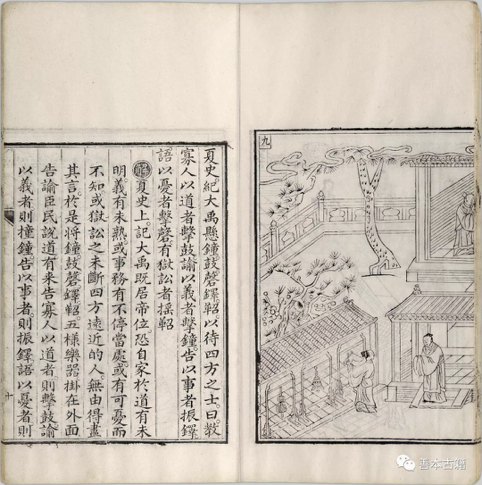 九
夏史紀大禹懸鐘鼓磬鐸鞀以待四方之士曰教
寡人以道者擊鼓諭以義者擊鐘告以事者振鐸
語以憂者擊磬有獄訟者搖鞀
夏史上記大禹既居帝位恐自家於道有未
明義有未熟或事務有不停當處或有可憂而
不知或獄訟之未斷四方遠近的人無由得盡
其言於是將鐘鼓磬鐸鞀五樣樂器掛在外面
告諭臣民說道有來告寡人以道者則擊鼓諭
以義者則撞鐘告以事者則振鐸語以憂者則
十
善本古籍